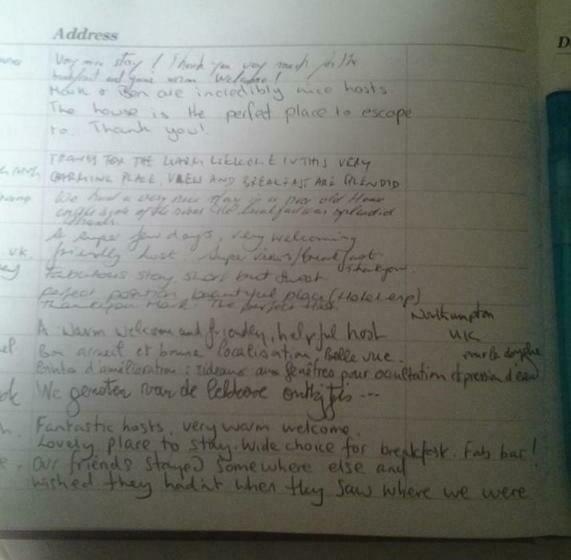 Address
D
Very nice stay! Thank you very much for the
breakfast and your warm welcome!
Mark & Ben are incredibly nice hosts.
The house is the perfect place to escape
to. Thank you!
THANKS FOR THE WARM WELCOME IN THIS VERY
CHARMING PLACE. VIEW AND BREAKFAST ARE SPLENDID
We had a very nice stay in a old House
on the side of the breakfast was splendid
A super few days, very welcoming
UK. friendly host. Super views/breakfast
Thankyou
Fabulous stay short but sweet
Perfect position beautiful place (Hotel esp)
Thankyou Mark. The perfect host
Northampton
A warm welcome and friendly, helpful host
UK
Bon accueil et bonne localisation, Belle vue.
Points d'amélioration : rideaux aux fenêtres pour occultation et pression d'eau
sur la douche
We genoten van de lekkere ontbijtjes ...
Fantastic hosts, very warm welcome.
Lovely place to stay. Wide choice for breakfast. Fab bar!
Our friends stayed somewhere else and
wished they hadnt when they saw where we were